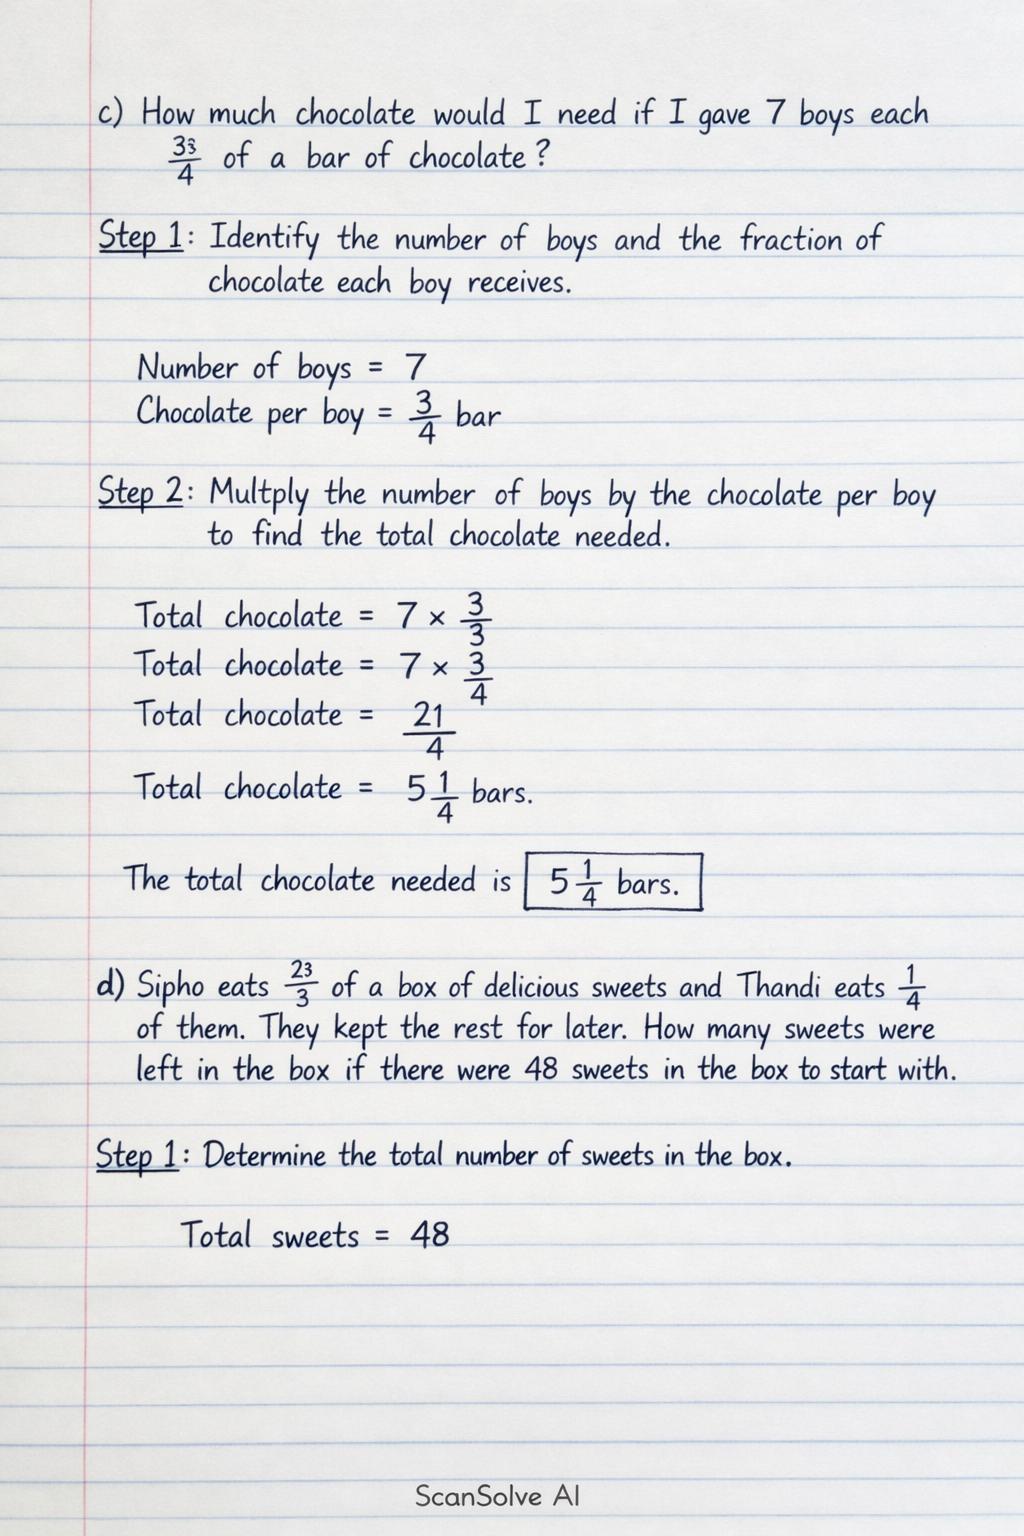 c) How much chocolate would I need if I gave 7 boys each
33/4 of a bar of chocolate?
Step 1: Identify the number of boys and the fraction of
chocolate each boy receives.
Number of boys = 7
Chocolate per boy = 3/4 bar
Step 2: Multply the number of boys by the chocolate per boy
to find the total chocolate needed.
Total chocolate = 7 × 3/3
Total chocolate = 7 × 3/4
Total chocolate = 21/4
Total chocolate = 5 1/4 bars.
The total chocolate needed is 5 1/4 bars.
d) Sipho eats 23/3 of a box of delicious sweets and Thandi eats 1/4
of them. They kept the rest for later. How many sweets were
left in the box if there were 48 sweets in the box to start with.
Step 1: Determine the total number of sweets in the box.
Total sweets = 48
ScanSolve AI